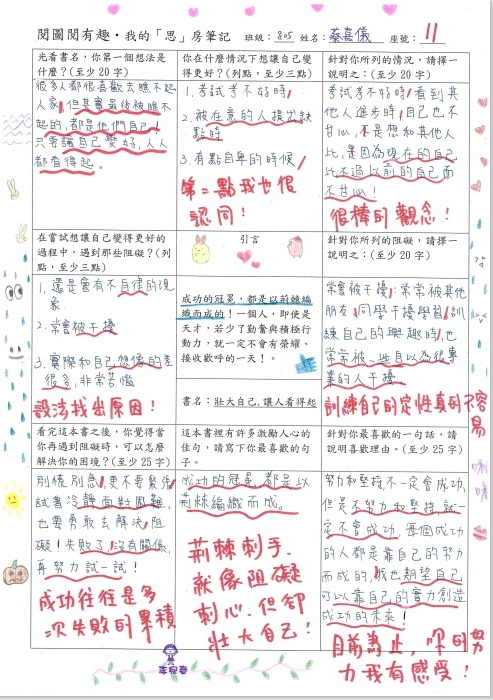 閱圖閱有趣・我的「思」房筆記 班級：805 姓名：蔡嘉儀 座號：11
光看書名，你第一個想法是
什麼？(至少 20 字)
很多人都很喜歡去瞧不起
人家，但其實最後被瞧不
起的，都是他們自己！
只要讓自己變好，人人
都看得起。
你在什麼情況下想讓自己變
得更好？(列點，至少三點)
1. 考試考不好時
2. 被在意的人提出缺
點時
3. 有點自卑的時候
第二點我也很
認同！
針對你所列的情況，請擇一
說明之：(至少 20 字)
考試考不好時，看到其
他人進步時，自己也不
甘心，不是想和其他人
比，是因為現在的自己
比不過以前的自己而
不甘心！
很棒的觀念！
在嘗試想讓自己變得更好的
過程中，遇到那些阻礙？(列
點，至少三點)
1. 還是會有不自律的現
象
2. 常會被干擾
3. 實際和自己想像的差
很多，非常苦惱
設法找出原因！
引言
成功的冠冕，都是以荊棘編
織而成的！一個人，即使是
天才，若少了勤奮與積極行
動力，就一定不會有榮耀、
接收歡呼的一天！。
書名：壯大自己，讓人看得起
針對你所列的阻礙，請擇一
說明之：(至少 20 字)
常會被干擾：常常被其他
朋友、同學干擾學習，訓
練自己的興趣時，也
常常被一些自以為很專
業的人干擾
訓練自己的定性真的不容易
看完這本書之後，你覺得當
你再遇到阻礙時，可以怎麼
解決你的困境？(至少 25 字)
別慌別急，更不要緊張
試著冷靜面對困難，
也要勇敢去解決阻
礙！失敗了，沒有關係，
再努力試一試！
成功往往是多
次失敗的累積
這本書裡有許多激勵人心的
佳句，請寫下你最喜歡的句
子。
成功的冠冕，都是以
荊棘編織而成。
荊棘刺手，
就像阻礙
刺心，但卻
壯大自己！
針對你最喜歡的一句話，請
說明喜歡理由。(至少 25 字)
努力和堅持不一定會成功，
但是不努力和堅持就一
定不會成功，每個成功
的人都是靠自己的努力
而成的，我也期望自己
可以靠自己的實力創造
成功的未來！
目前為止，你的努
力我有感受！